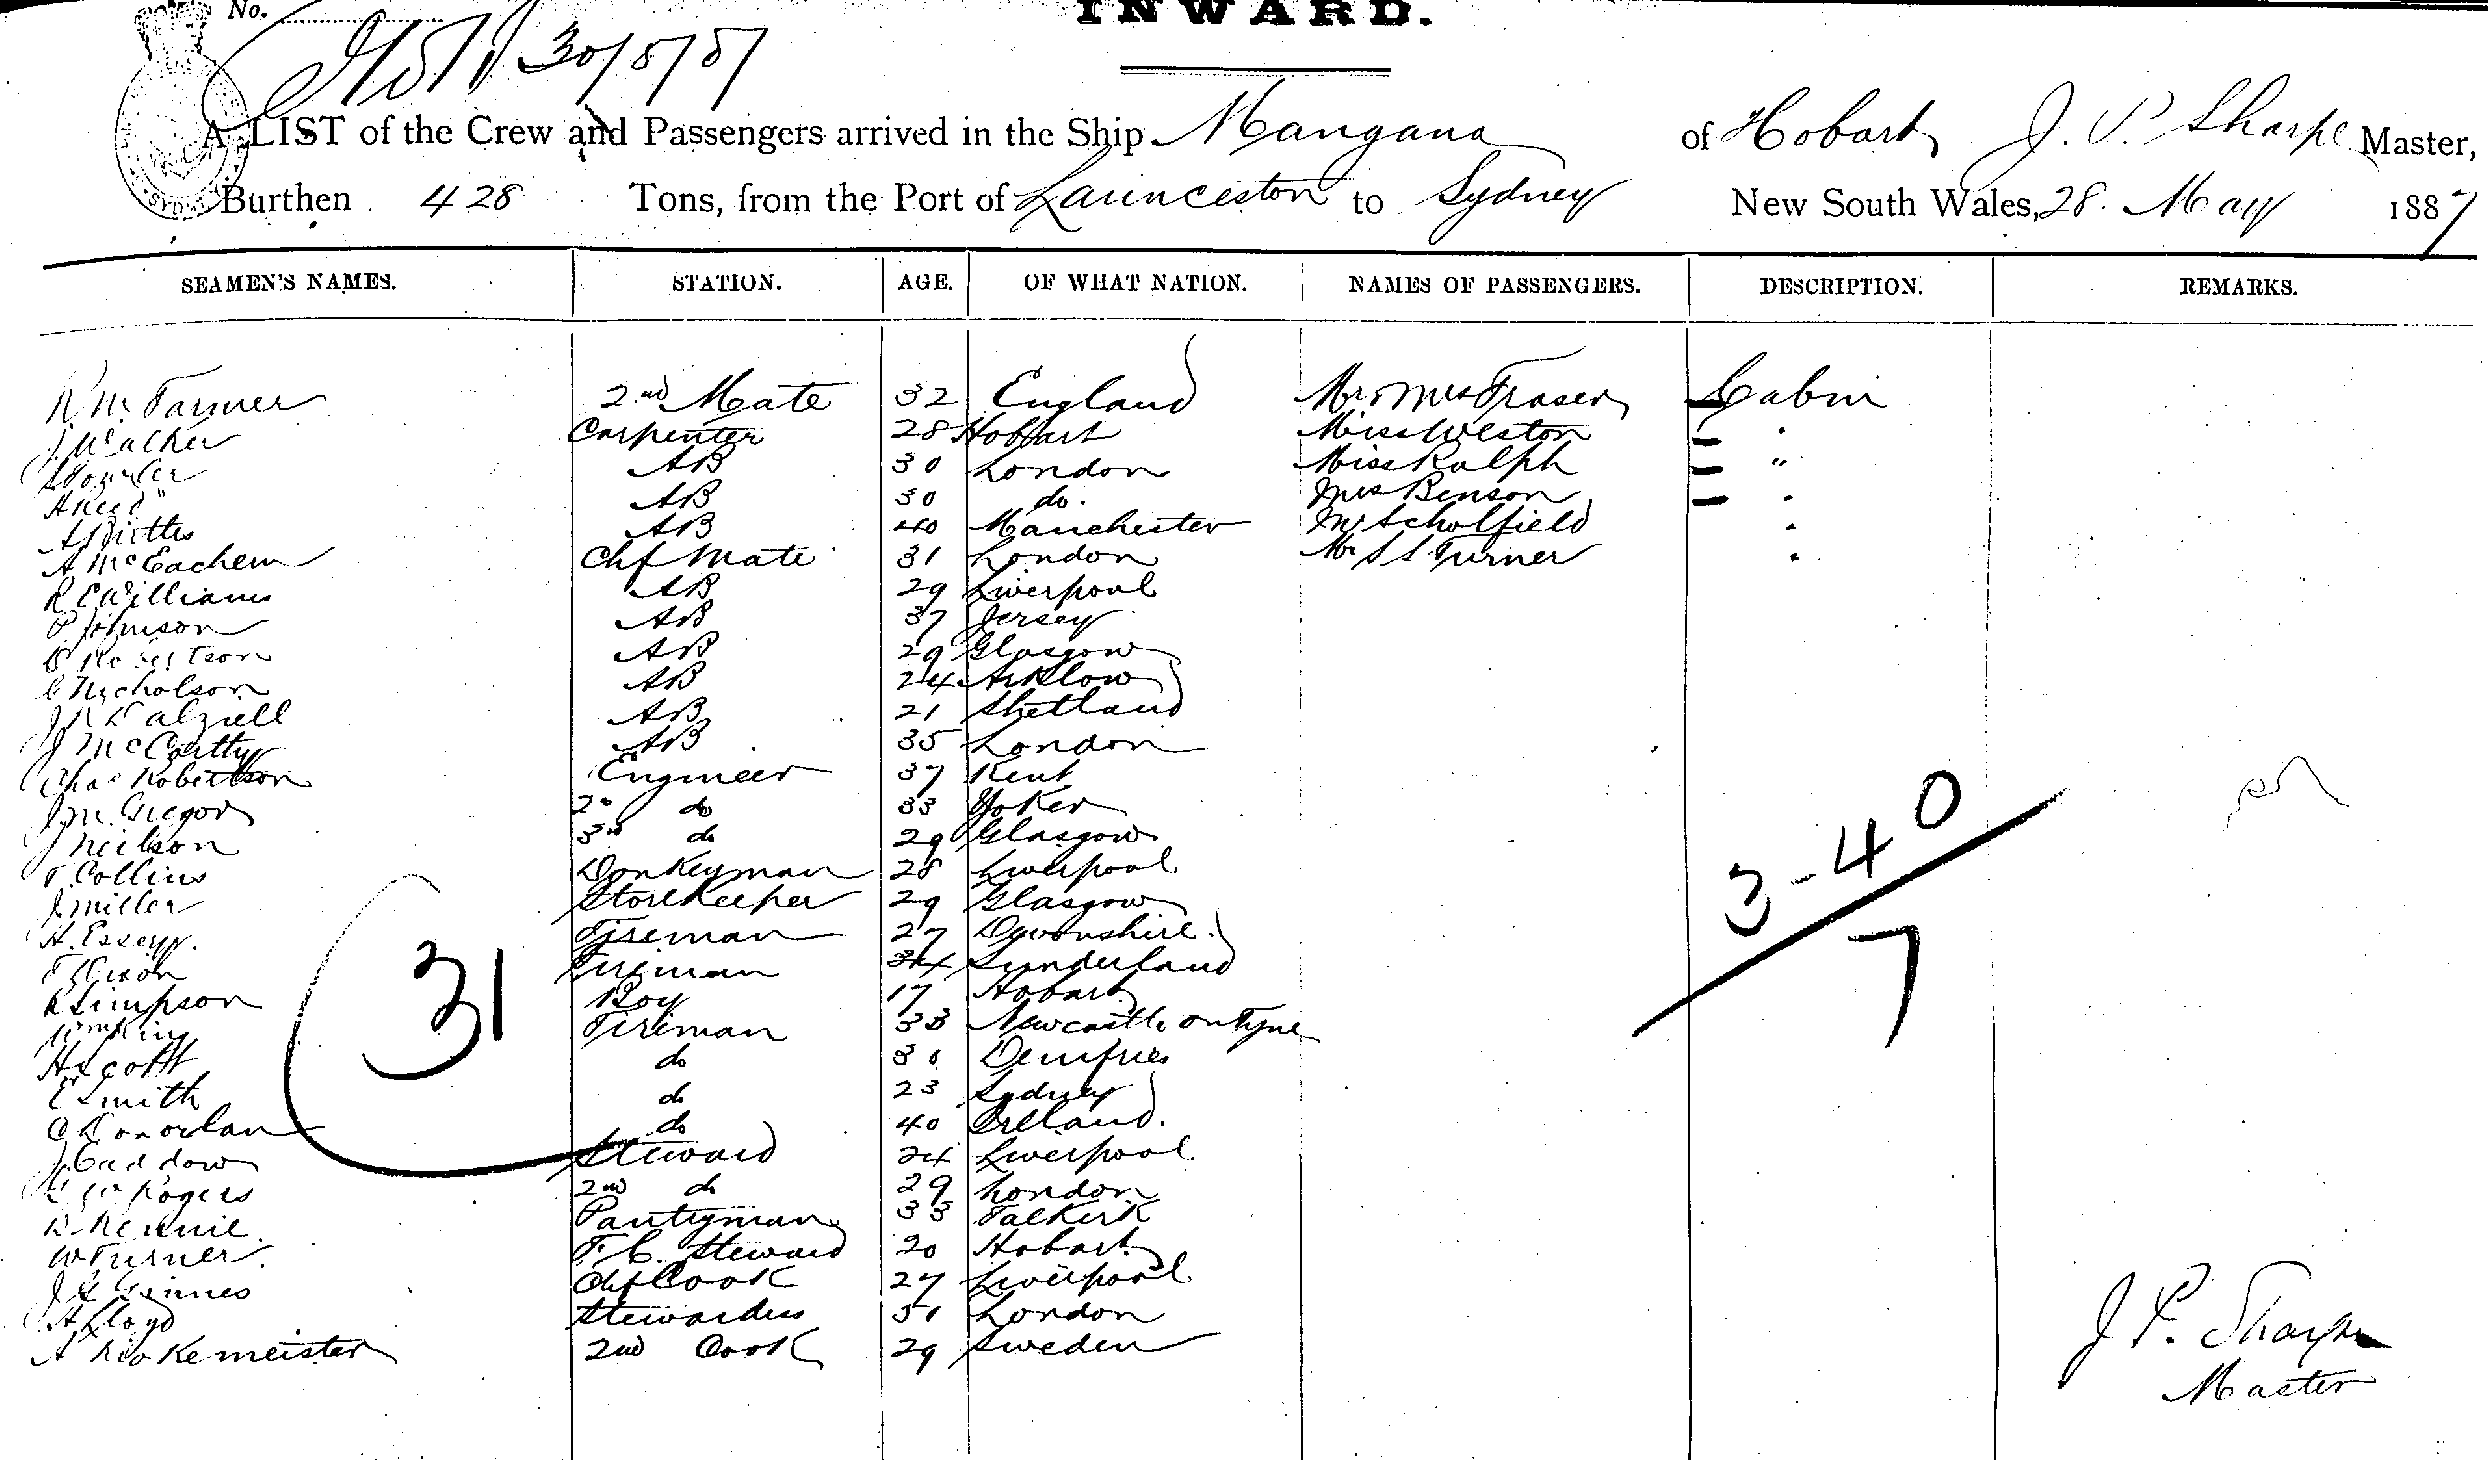 No.
INWARD.
30/5/87
A LIST of the Crew and Passengers arrived in the Ship Mangana of Hobart J. P. Sharpe Master,
Burthen 428 Tons, from the Port of Launceston to Sydney New South Wales, 28. May 1887
SEAMEN'S NAMES. STATION. AGE. OF WHAT NATION. NAMES OF PASSENGERS. DESCRIPTION. REMARKS.
R M Farmer 2nd Mate 32 England Mr & Mrs Fraser Cabin
J Walker Carpenter 28 Hobart Miss Weston "
AB 30 London Miss Ralph "
A Reid AB 30 do. Mrs Benson "
AB 40 Manchester Mr Scholfield "
A McEachern Chf Mate 31 London Mr S S Turner "
R E Williams AB 29 Liverpool
P Johnson AB 37 Jersey
Robertson AB 29 Glasgow
C Nicholson AB 24 Arklow
J R Dalziell AB 21 Shetland
J McCarthy AB 35 London
Chas Robertson Engineer 37 Kent
J McGregor 2nd do 33 Yoker
J Neilson 3rd do 29 Glasgow
T. Collins Donkeyman 28 Liverpool
J Miller Storekeeper 29 Glasgow
H. Essery. Fireman 27 Devonshire.
T Dixon Fireman 34 Sunderland
R Simpson Boy 17 Hobart
Wm King Fireman 33 Newcastle on Tyne
H Scott do 30 Dumfries
E Smith do 23 Sydney
C Donovan do 40 Ireland.
J Caddow Steward 24 Liverpool
Rogers 2nd do 29 London
D Rennie. Pantryman 33 Falkirk
W Turner. F. C. Steward 20 Hobart
J G Ginnes Chf Cook 27 Liverpool
A Lloyd Stewardess 51 London
A 2nd Cook 29 Sweden
31
3-40
7
J P. Sharpe
Master